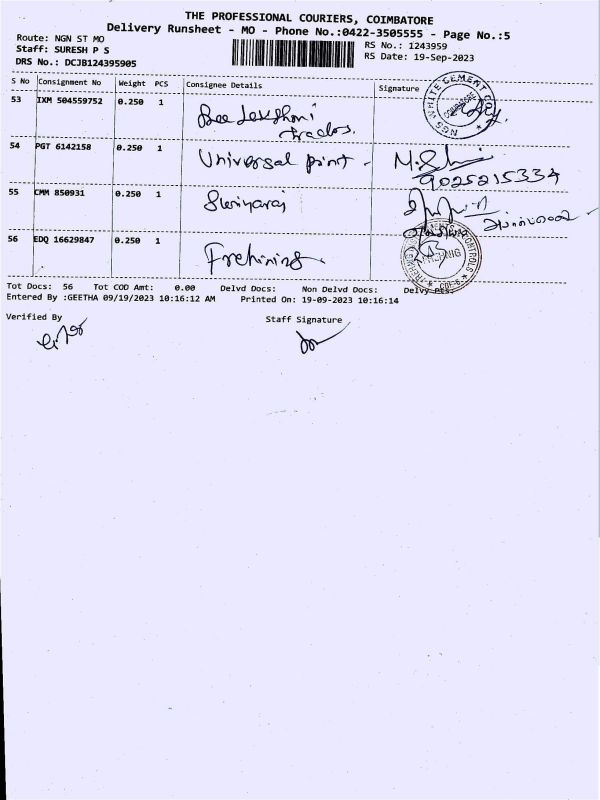 THE PROFESSIONAL COURIERS, COIMBATORE
Delivery Runsheet - MO - Phone No.:0422-3505555 - Page No.:5
Route: NGN ST MO
Staff: SURESH P S
DRS No.: DCJB124395905
RS No.: 1243959
RS Date: 19-Sep-2023
S No Consignment No Weight PCS Consignee Details Signature
53 IXM 504559752 0.250 1
NGS WHITE CEMENT CO
COIMBATORE
54 PGT 6142158 0.250 1 Universal print - 9025215334
55 CMM 850931 0.250 1 Suriyaraj
56 EDQ 16629847 0.250 1
Tot Docs: 56 Tot COD Amt: 0.00 Delvd Docs: Non Delvd Docs: Delvy Pts:
Entered By :GEETHA 09/19/2023 10:16:12 AM Printed On: 19-09-2023 10:16:14
Verified By
Staff Signature